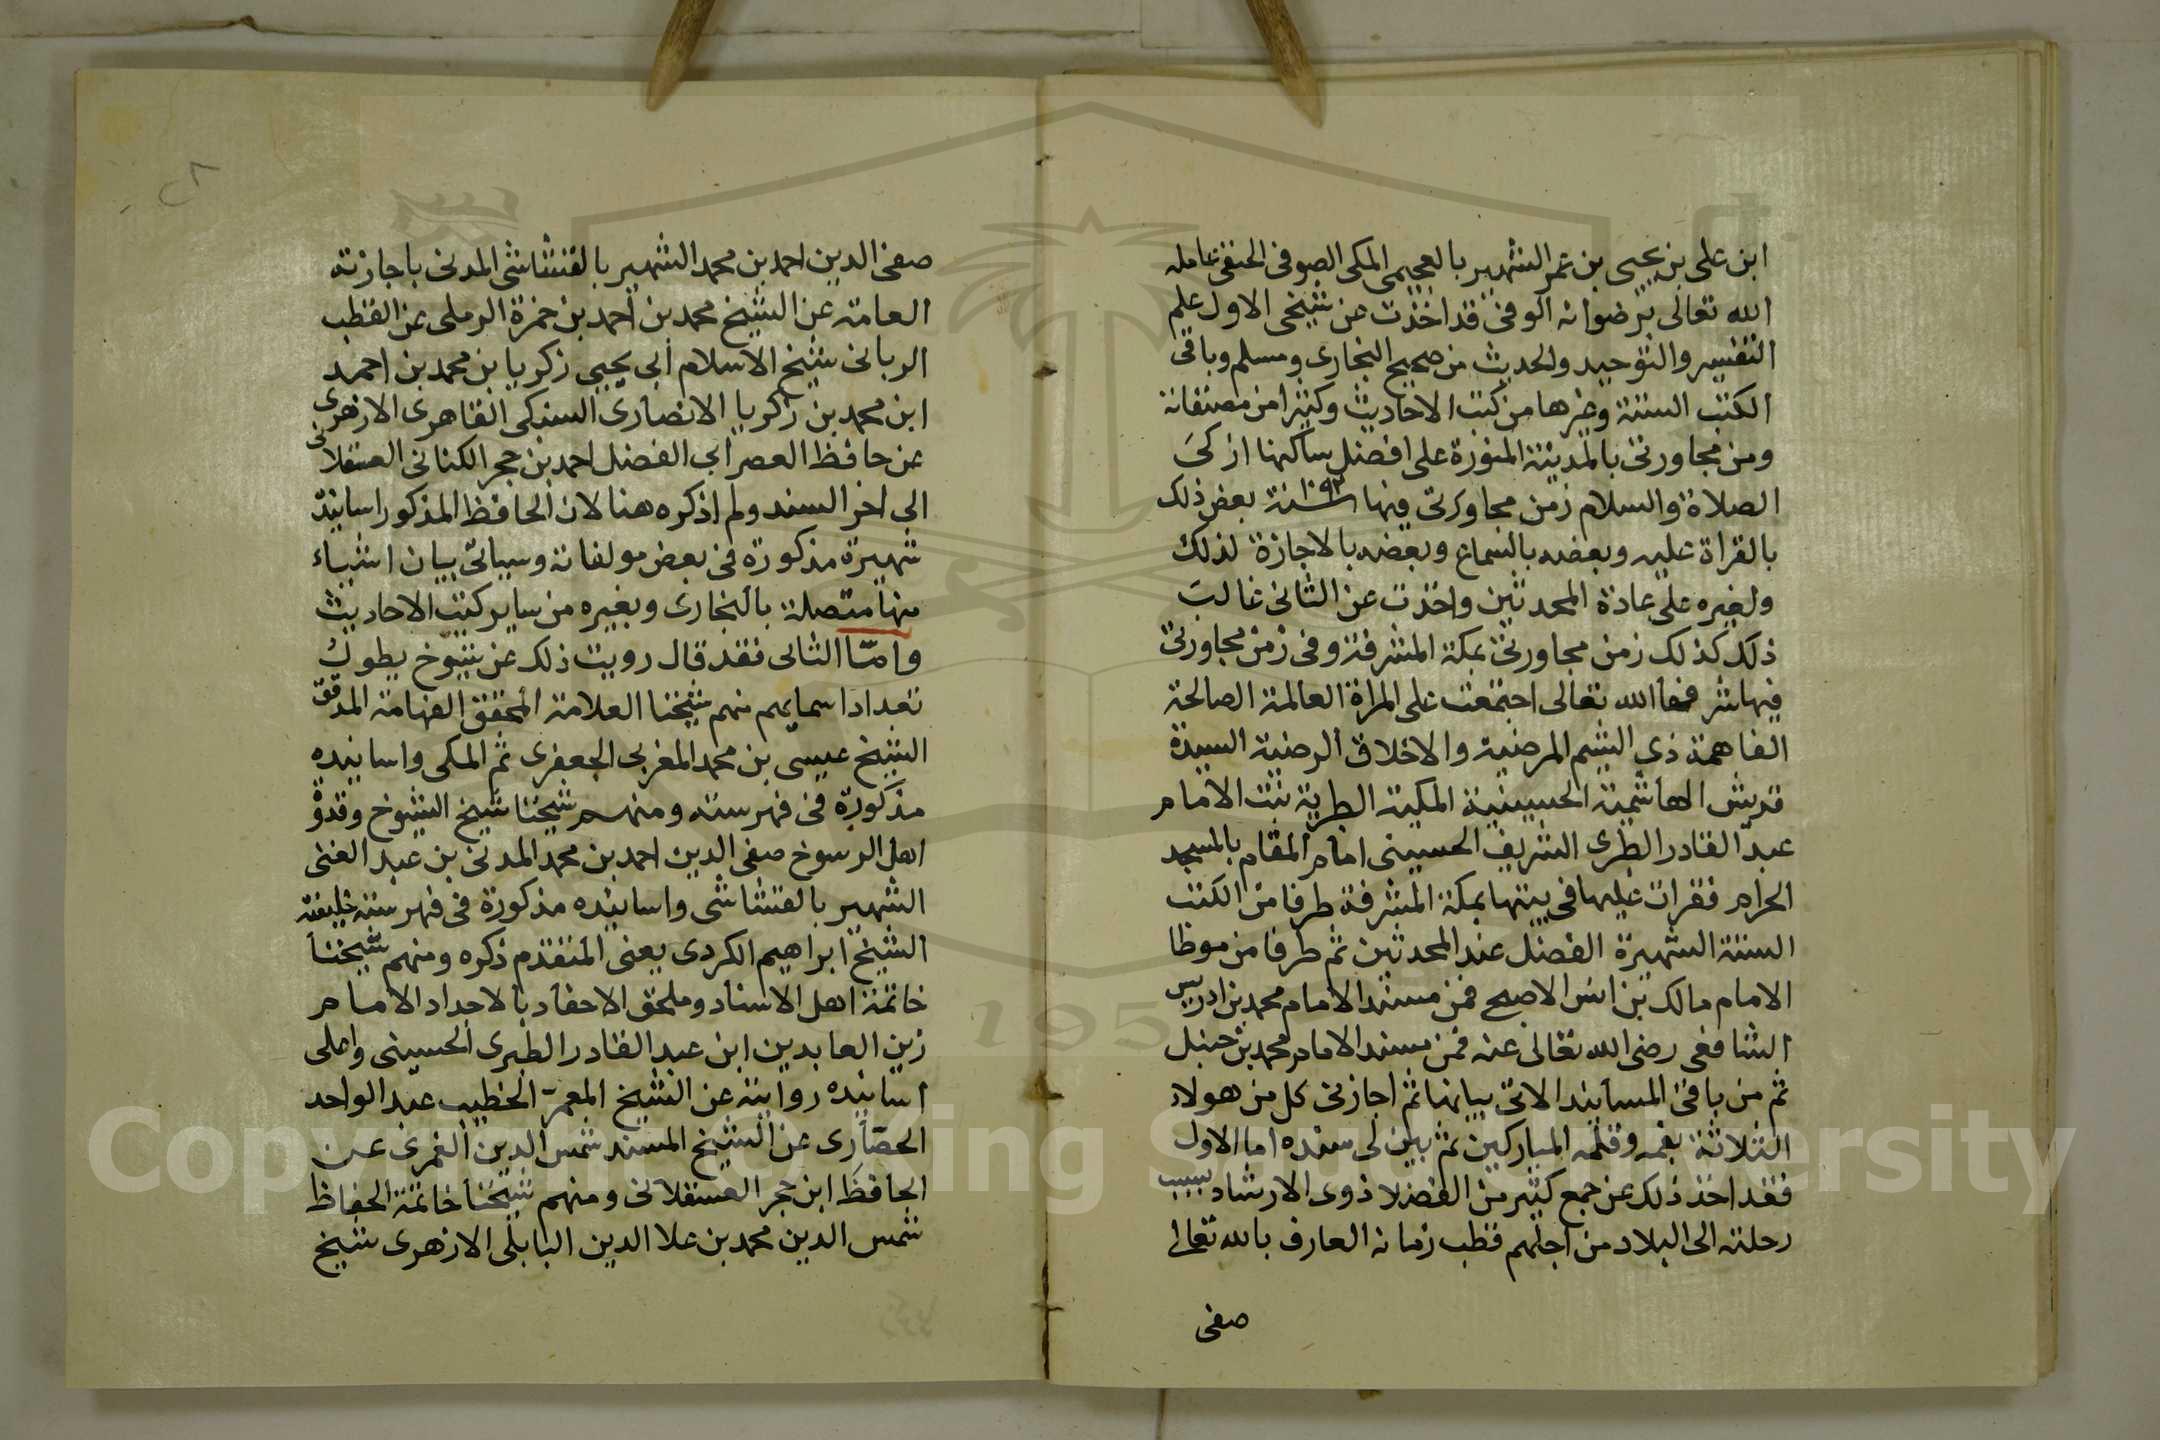 ابن على بن يحيى بن عمر الشهير بالعجيمى المكى الصوفى الحنفى عامله
الله تعالى برضوانه الوفى قد اخذت عن شيخى الاول علم
التفسير والتوحيد والحديث من صحيح البخارى ومسلم وباقى
الكتب الستة وغيرها من كتب الاحاديث وكثيرا من مصنفاته
ومن مجاورتى بالمدينة المنورة على افضل ساكنها ازكى
الصلاة والسلام زمن مجاورتى فيها سنة بعض ذلك
بالقراة عليه وبعضه بالسماع وبعضه بالاجازة لذلك
ولغيره على عادة المحدثين واخذت عن الثانى غالب
ذلك كذلك زمن مجاورتى بمكة المشرفة وفى زمن مجاورتى
فيها شرفها الله تعالى اجتمعت على المراة العالمة الصالحة
الفاهمة ذى الشيم المرضية والاخلاق الرضية السيدة
قريش الهاشمية الحسينية المكية الطبرية بنت الامام
عبد القادر الطبرى الشريف الحسينى امام المقام بالمسجد
الحرام فقرات عليها فى بيتها بمكة المشرفة طرفا من الكتب
الستة الشهيرة الفضل عند المحدثين ثم طرفا من موطا
الامام مالك بن انس الاصبحى فمن مسند الامام محمد بن ادريس
الشافعى رضى الله تعالى عنه فمن مسند الامام محمد بن حنبل
ثم من باقى المسانيد الاتى بيانها ثم اجازنى كل من هولاء
الثلاثة بفمه وقلمه المباركين ثم بين لى سنده اما الاول
فقد اخذ ذلك عن جمع كثير من الفضلا ذوى الارشاد بسبب
رحلته الى البلاد من اجلهم قطب زمانه العارف بالله تعالى
صفى
صفى الدين احمد بن محمد الشهير بالقشاشى المدنى باجازته
العامة عن الشيخ محمد بن احمد بن حمزة الرملى عن القطب
الربانى شيخ الاسلام ابى يحيى زكريا بن محمد بن احمد
ابن محمد بن زكريا الانصارى السنيكى القاهرى الازهرى
عن حافظ العصر ابى الفضل احمد بن حجر الكنانى العسقلانى
الى اخر السند ولم اذكره هنا لان الحافظ المذكور اسانيده
شهيرة مذكورة فى بعض مولفاته وسياتى بيان اشياء
منها متصلة بالبخارى وبغيره من ساير كتب الاحاديث
واما الثانى فقد قال رويت ذلك عن شيوخ يطول
تعداد اسمايهم منهم شيخنا العلامة المحقق الفهامة المدقق
الشيخ عيسى بن محمد المغربى الجعفرى ثم المكى واسانيده
مذكورة فى فهرسته ومنهم شيخنا شيخ الشيوخ وقدوة
اهل الرسوخ صفى الدين احمد بن محمد المدنى بن عبد الغنى
الشهير بالقشاشى واسانيده مذكورة فى فهرسته خليفته
الشيخ ابراهيم الكردى يعنى المتقدم ذكره ومنهم شيخنا
خاتمة اهل الاسناد وملحق الاحفاد بالاجداد الامام
زين العابدين ابن عبد القادر الطبرى الحسينى واعلى
اسانيده روايته عن الشيخ المعمر الخطيب عبد الواحد
الحصارى عن الشيخ المسند شمس الدين الغمرى عن
الحافظ ابن حجر العسقلانى ومنهم شيخنا خاتمة الحفاظ
شمس الدين محمد بن علا الدين البابلى الازهرى شيخ
Copyright © King Saud University
195